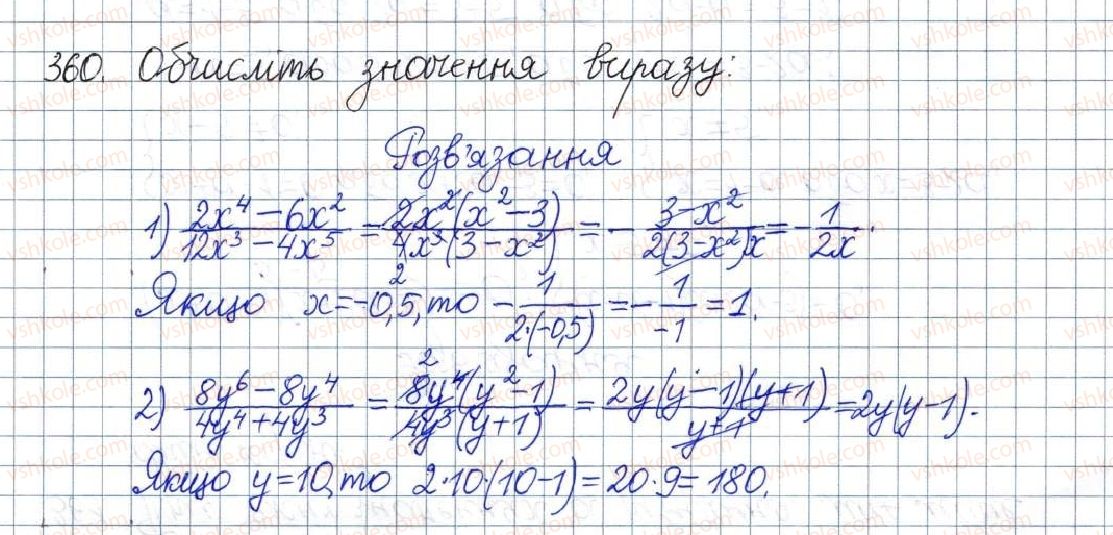 360. Обчисліть значення виразу:
Розв'язання
1) (2x⁴ – 6x²)/(12x³ – 4x⁵) = (2x²(x² – 3))/(4x³(3 – x²)) = – (3 – x²)/(2(3 – x²)x) = – 1/(2x).
Якщо x = -0,5, то – 1/(2·(-0,5)) = – 1/(-1) = 1.
2) (8y⁶ – 8y⁴)/(4y⁴ + 4y³) = (8y⁴(y² – 1))/(4y³(y + 1)) = (2y(y – 1)(y + 1))/(y + 1) = 2y(y – 1).
Якщо y = 10, то 2·10·(10 – 1) = 20·9 = 180.